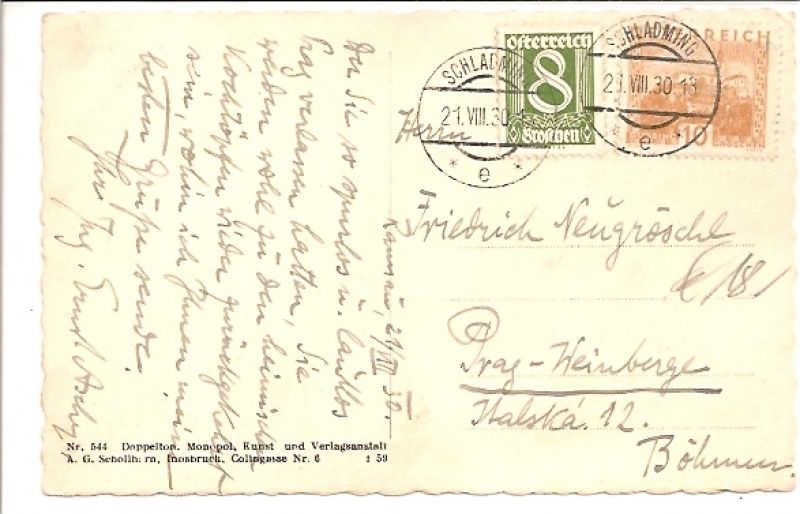 Österreich
8
Groschen
ÖSTERREICH
10
GROSCHEN
SCHLADMING
21.VIII.30
e
SCHLADMING
21.VIII.30.13
e
Ramsau, 21/VIII 30.
Da Sie so spurlos u. lautlos
Prag verlassen hatten, Sie
werden wohl zu den heimischen
Kochtöpfen wieder zurückgekehrt
sein, wohin ich Ihnen meine
besten Grüße sende.
Ihr Ing. Ernst
Herrn
Friedrich Neugröschl
Prag-Weinberge
Italská 12.
Böhmen.
Nr. 544 Doppelton. Monopol, Kunst und Verlagsanstalt
A. G. Schollhorn, Innsbruck, Colingasse Nr. 6 1 59